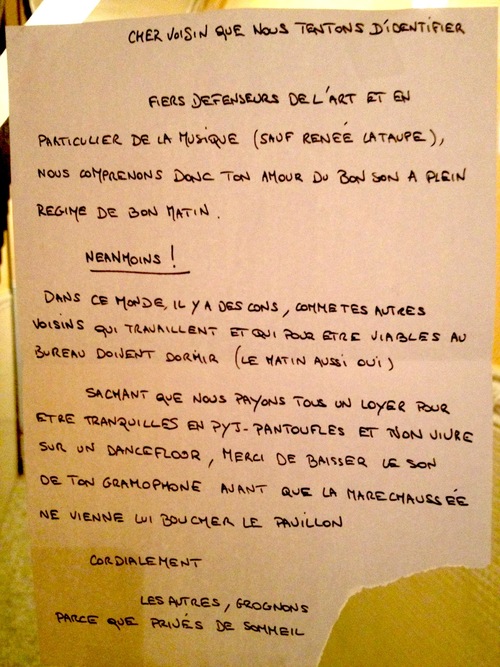 CHER VOISIN QUE NOUS TENTONS D'IDENTIFIER
FIERS DEFENSEURS DE L'ART ET EN
PARTICULIER DE LA MUSIQUE (SAUF RENEÉ LATAUPE),
NOUS COMPRENONS DONC TON AMOUR DU BON SON A PLEIN
REGIME DE BON MATIN.
NEANMOINS !
DANS CE MONDE, IL Y A DES CONS, COMME TES AUTRES
VOISINS QUI TRAVAILLENT ET QUI POUR ETRE VIABLES AU
BUREAU DOIVENT DORMIR (LE MATIN AUSSI OUI)
SACHANT QUE NOUS PAYONS TOUS UN LOYER POUR
ETRE TRANQUILLES EN PYJ-PANTOUFLES ET NON VIVRE
SUR UN DANCEFLOOR, MERCI DE BAISSER LE SON
DE TON GRAMOPHONE AVANT QUE LA MARECHAUSSÉE
NE VIENNE LUI BOUCHER LE PAVILLON
CORDIALEMENT
LES AUTRES, GROGNONS
PARCE QUE PRIVÉS DE SOMMEIL